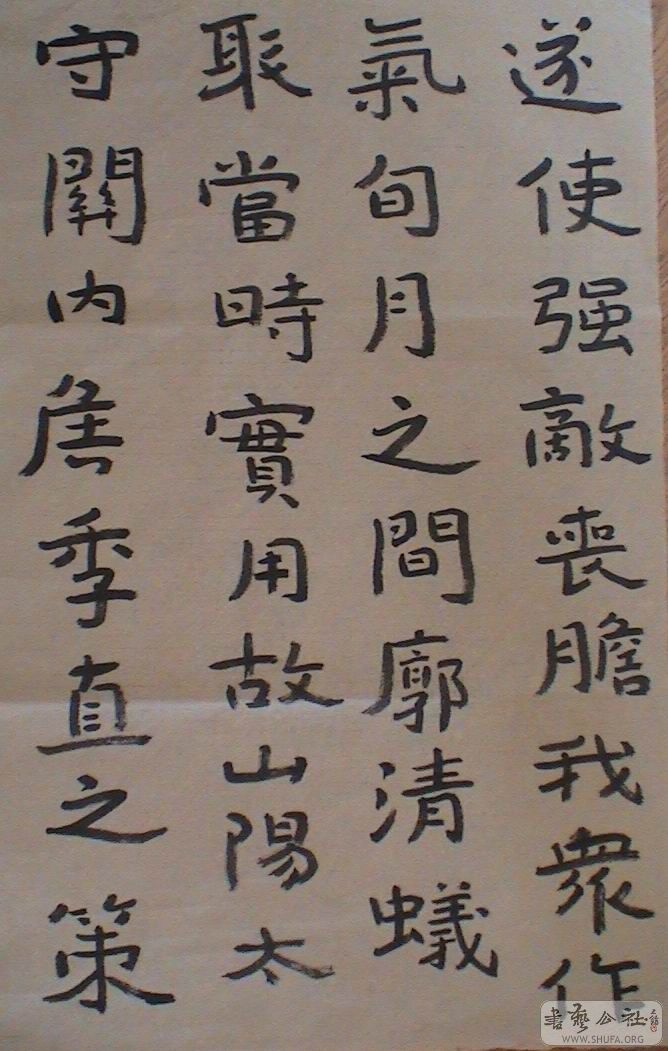 遂使强敵喪膽我衆作
氣旬月之間廓清蟻
聚當時實用故山陽太
守關内矦季直之策
書藝公社
WWW.SHUFA.ORG